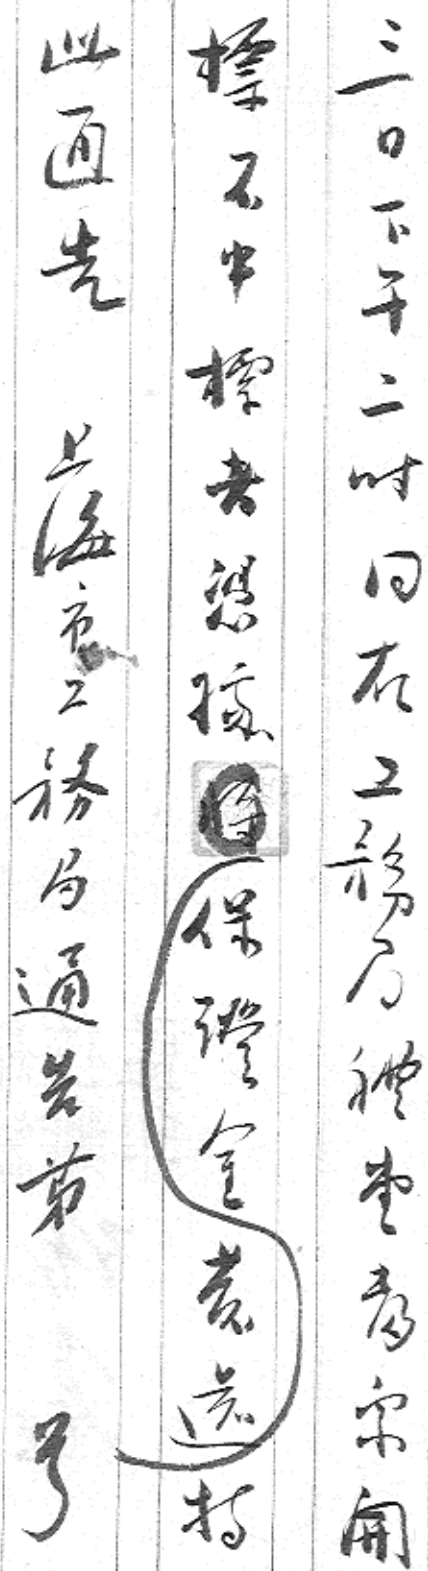 三日下午二时同在工務局禮堂當眾開
標不中標者憑據將保證金發還特
此通告　上海市工務局通告第　号